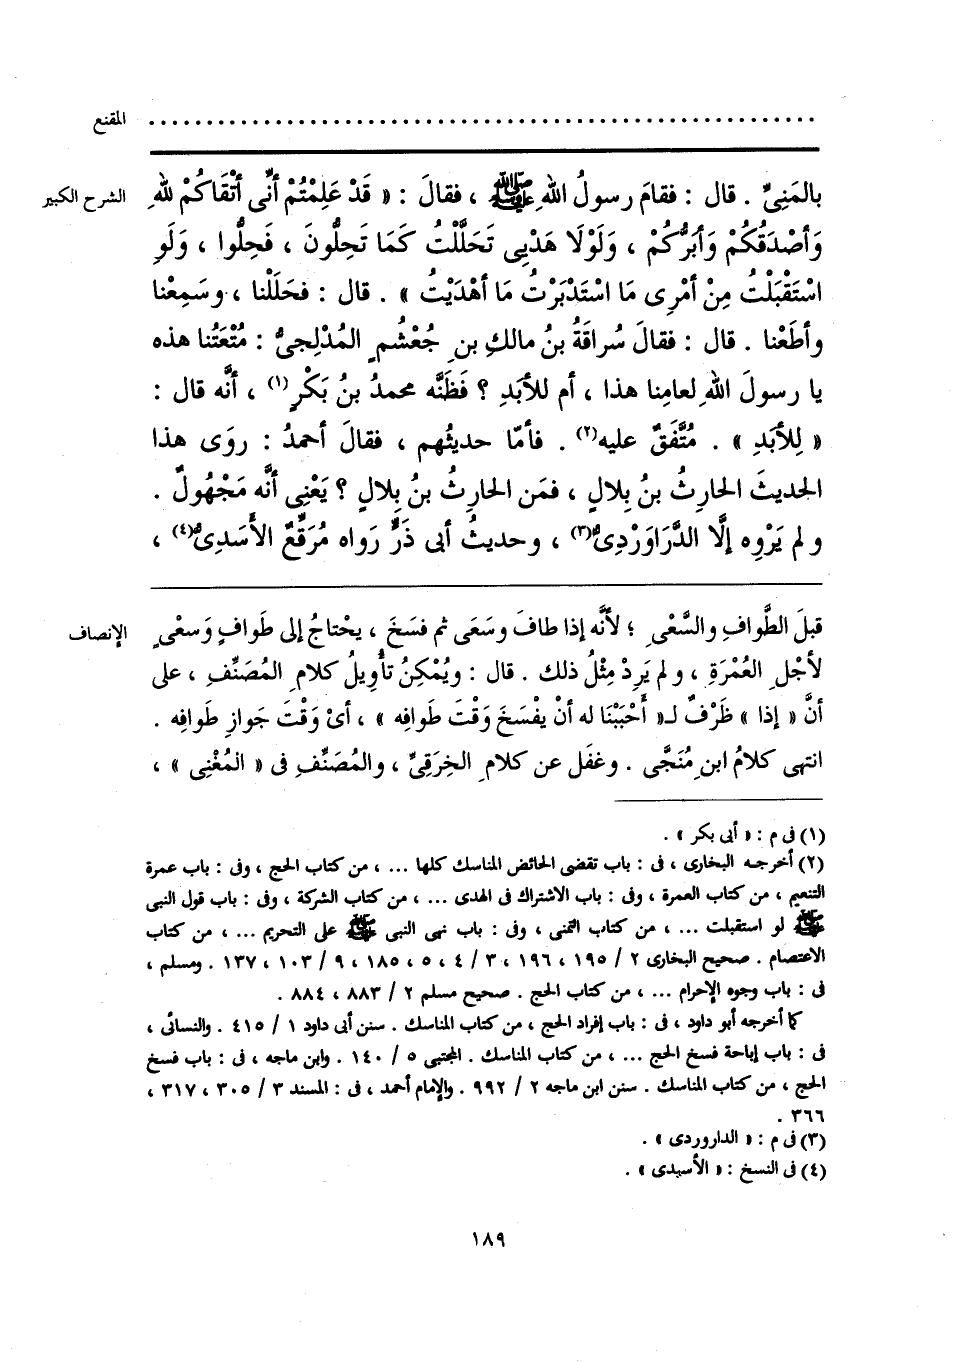 المقنع ........................................................
الشرح الكبير
بالمَنِيِّ . قال : فقامَ رسولُ اللهِ ﷺ ، فقالَ : « قَدْ عَلِمْتُمْ أنِّى أتْقَاكُمْ للهِ
وَأصْدَقُكُمْ وَأبَرُّكُمْ ، وَلَوْلَا هَدْيِى تَحَلَّلْتُ كَمَا تَحِلُّونَ ، فَحِلُّوا ، وَلَوِ
اسْتَقْبَلْتُ مِنْ أمْرِى مَا اسْتَدْبَرْتُ مَا أهْدَيْتُ » . قال : فحَلَلْنا ، وسَمِعْنا
وأطَعْنا . قال : فقالَ سُراقَةُ بنُ مالكِ بنِ جُعْشُمٍ المُدْلِجِىُّ : مُتْعَتُنا هذه
يا رسولَ اللهِ لعامِنا هذا ، أم للأبَدِ ؟ فَظَنَّه محمدُ بنُ بَكْرٍ(١) ، أنَّه قال :
« لِلأبَدِ » . مُتَّفَقٌ عليه(٢) . فأمّا حديثُهم ، فقالَ أحمدُ : روَى هذا
الحديثَ الحارِثُ بنُ بِلالٍ ، فمَن الحارِثُ بنُ بِلالٍ ؟ يَعْنِى أنَّه مَجْهُولٌ .
ولم يَرْوِه إلَّا الدَّرَاوَرْدِىُّ(٣) ، وحديثُ أبى ذَرٍّ رَواه مُرَقِّعٌ الأَسَدِىُّ(٤) ،
الإنصاف
قبلَ الطَّوافِ والسَّعْىِ ؛ لأنَّه إذا طافَ وسَعَى ثم فسَخَ ، يحْتاجُ إلى طَوافٍ وَسعْىٍ
لأجْلِ العُمْرَةِ ، ولم يَرِدْ مِثْلُ ذلك . قال : ويُمْكِنُ تأْوِيلُ كلامِ المُصَنِّفِ ، على
أنَّ « إذا » ظَرْفٌ لـ« أَحْبَبْنَا له أنْ يفْسَخَ وَقْتَ طَوافِه » ، أىْ وَقْتَ جَوازِ طَوافِه .
انتهى كلامُ ابنِ مُنَجَّى . وغفَل عن كلامِ الخِرَقِىِّ ، والمُصَنِّفِ فى « المُغْنِى » ،
(١) فى م : « أبى بكر » .
(٢) أخرجه البخارى ، فى : باب تقضى الحائض المناسك كلها ... ، من كتاب الحج ، وفى : باب عمرة
التنعيم ، من كتاب العمرة ، وفى : باب الاشتراك فى الهدى ... ، من كتاب الشركة ، وفى : باب قول النبى
ﷺ لو استقبلت ... ، من كتاب التمنى ، وفى : باب نهى النبى ﷺ على التحريم ... ، من كتاب
الاعتصام . صحيح البخارى ٢ / ١٩٥ ، ١٩٦ ، ٣ / ٤ ، ٥ ، ١٨٥ ، ٩ / ١٠٣ ، ١٣٧ . ومسلم ،
فى : باب وجوه الإحرام ... ، من كتاب الحج . صحيح مسلم ٢ / ٨٨٣ ، ٨٨٤ .
كما أخرجه أبو داود ، فى : باب إفراد الحج ، من كتاب المناسك . سنن أبى داود ١ / ٤١٥ . والنسائى ،
فى : باب إباحة فسخ الحج ... ، من كتاب المناسك . المجتبى ٥ / ١٤٠ . وابن ماجه ، فى : باب فسخ
الحج ، من كتاب المناسك . سنن ابن ماجه ٢ / ٩٩٢ . والإمام أحمد ، فى : المسند ٣ / ٣٠٥ ، ٣١٧ ،
٣٦٦ .
(٣) فى م : « الداروردى » .
(٤) فى النسخ : « الأسيدى » .
١٨٩